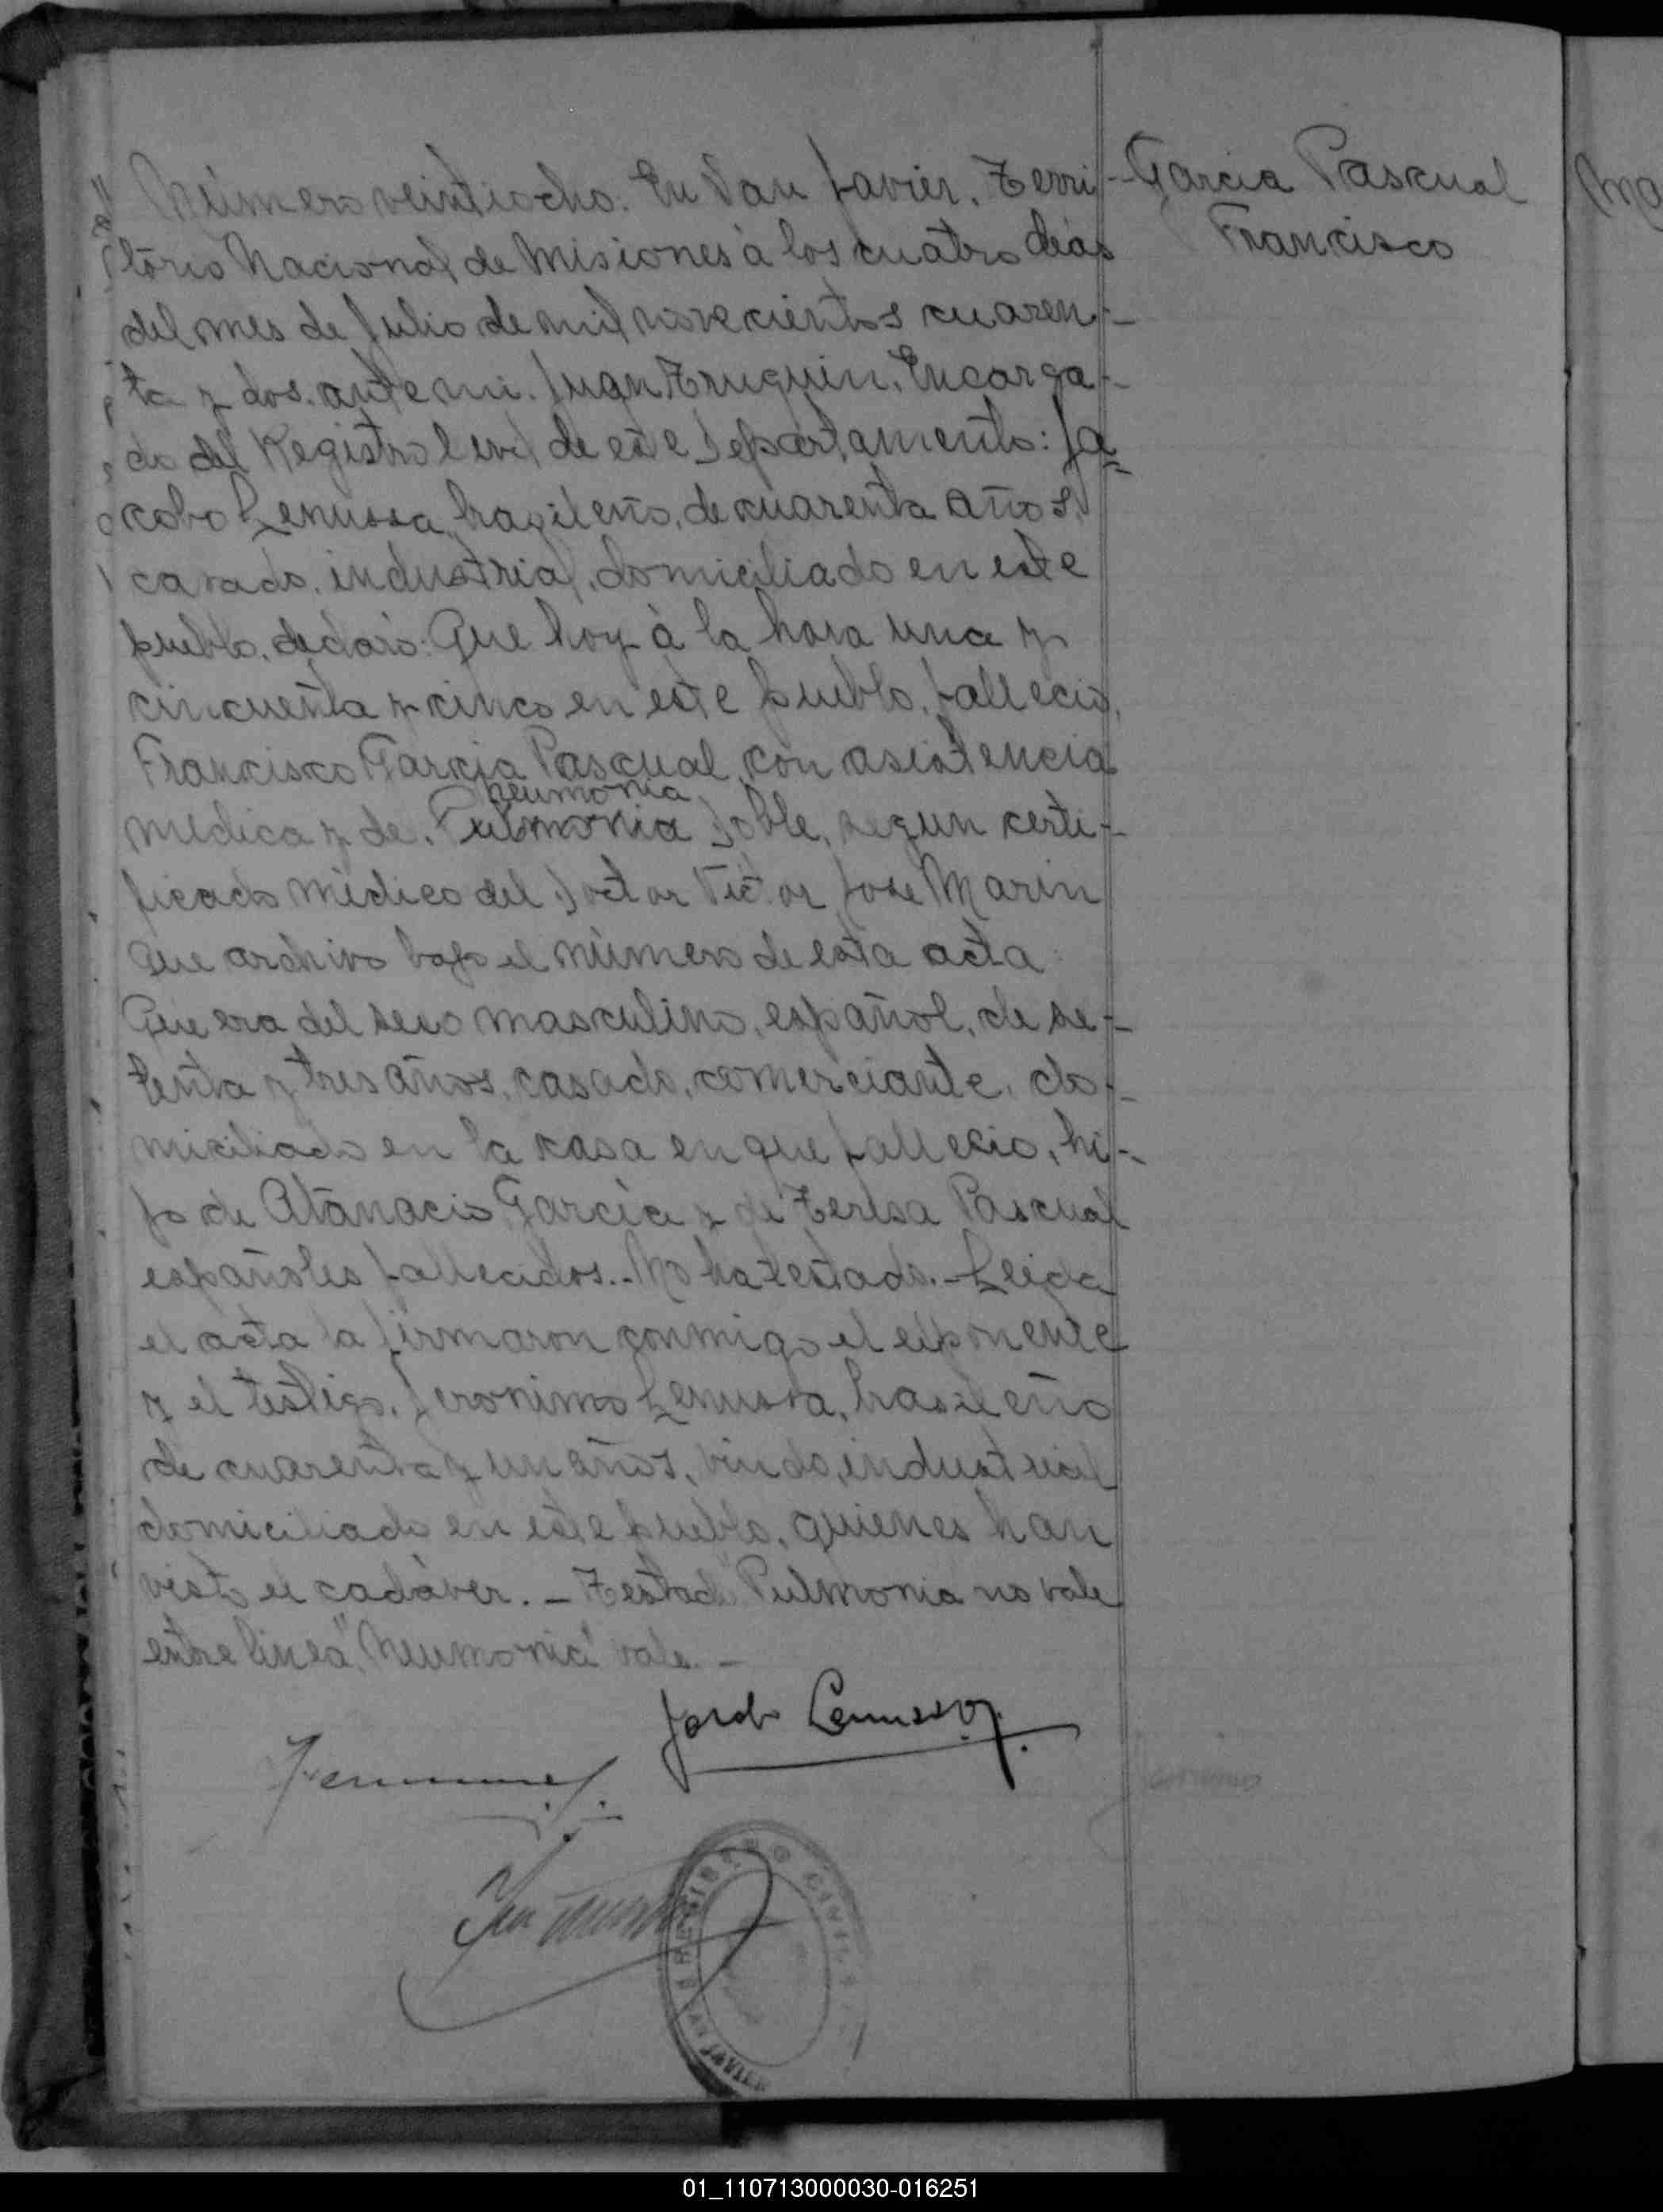 Número veintiocho. En San Javier, Terri-
torio Nacional de Misiones à los cuatro dias
del mes de Julio de mil novecientos cuaren-
ta y dos. ante mi. Juan Truguin, Encarga-
do del Registro Civil de este Departamento: Ja=
cobo Lenussa, brazileño, de cuarenta años,
casado, industrial, domiciliado en este
pueblo, declaró: Que hoy à la hora una y
cincuenta y cinco en este pueblo, falleció,
Francisco Garcia Pascual, con asistencia
neumonia
médica y de. Pulmonia doble, segun certi-
ficado médico del Doctor Victor Jose Marin
que archivo bajo el número de esta acta:
Que era del sexo masculino, español, de se-
tenta y tres años, casado, comerciante, do-
miciliado en la casa en que fallecio, hi-
jo de Atanacio Garcia y de Teresa Pascual
españoles fallecidos.- No ha testado.- Leida
el acta la firmaron conmigo el exponente
y el testigo, Jeronimo Lenussa, brasileño
de cuarenta y un años, viudo, industrial
domiciliado en este pueblo, quienes han
visto el cadáver. - Testad "Pulmonia no vale
entre linea "Neumonia" vale. -
Garcia Pascual
Francisco
Jacobo Lenussa
REGISTRO CIVIL
SAN JAVIER
01_110713000030-016251